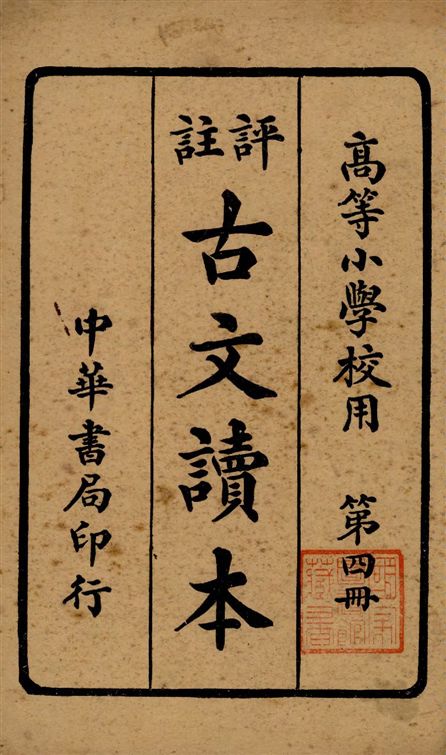 高等小學校用 第四冊
評註
古文讀本
中華書局印行